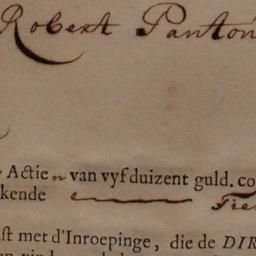 Robert Panton
Actien van vyf duizent guld. co
kende Tie
st met d'Inroepinge, die de DIR